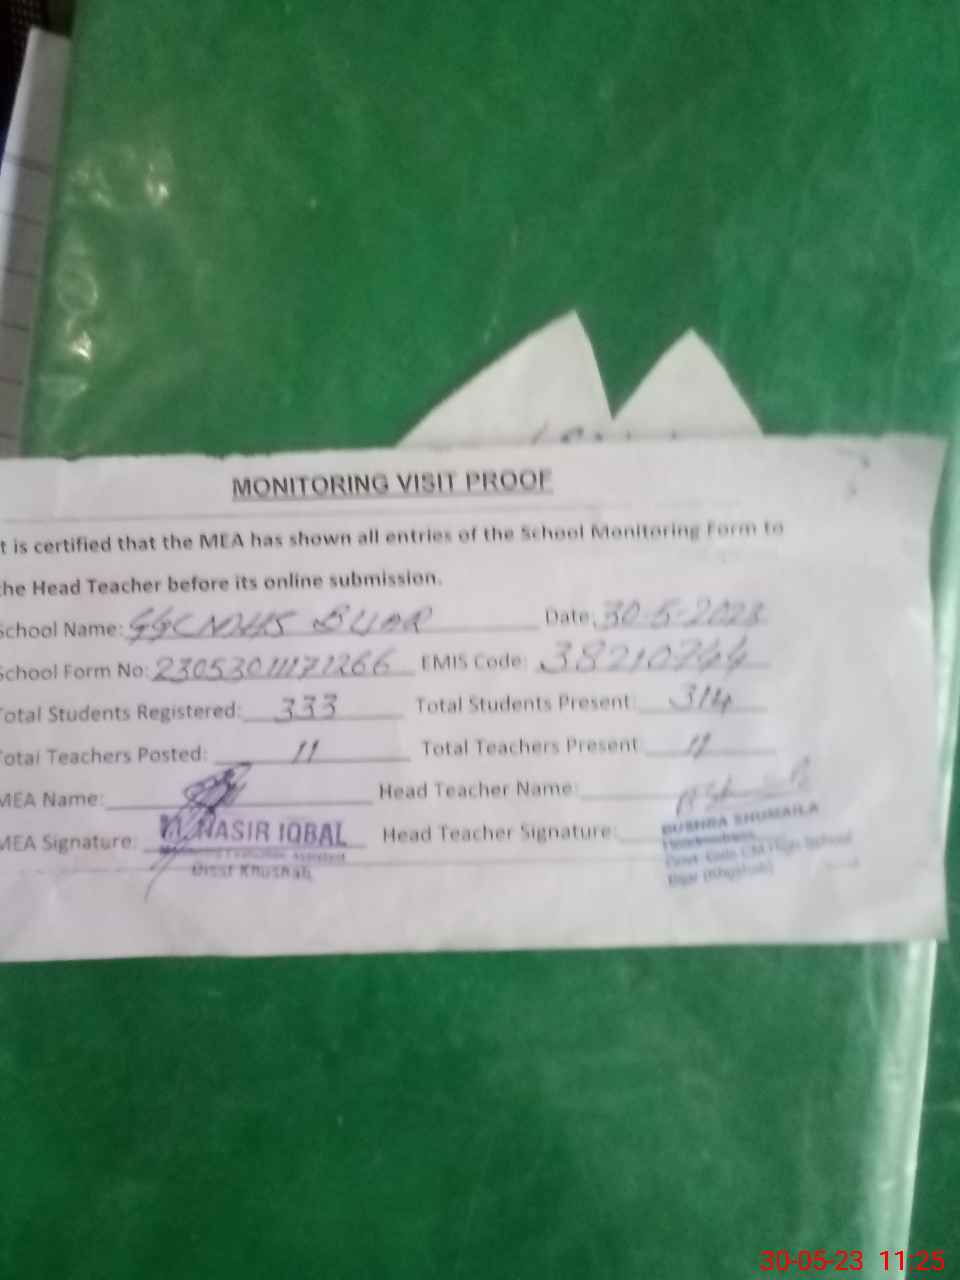 MONITORING VISIT PROOF
t is certified that the MEA has shown all entries of the School Monitoring Form to
the Head Teacher before its online submission.
School Name: GGCMHS BIJAR Date: 30-5-2023
School Form No: 23053011171266 EMIS Code: 38210744
Total Students Registered: 333 Total Students Present: 314
Total Teachers Posted: 11 Total Teachers Present 11
MEA Name: Head Teacher Name:
MEA Signature: M. NASIR IQBAL Head Teacher Signature: BUSHRA SHUMAILA
Headmistress
Distt Khushab Govt. Girls CM High School
30-05-23 11:25